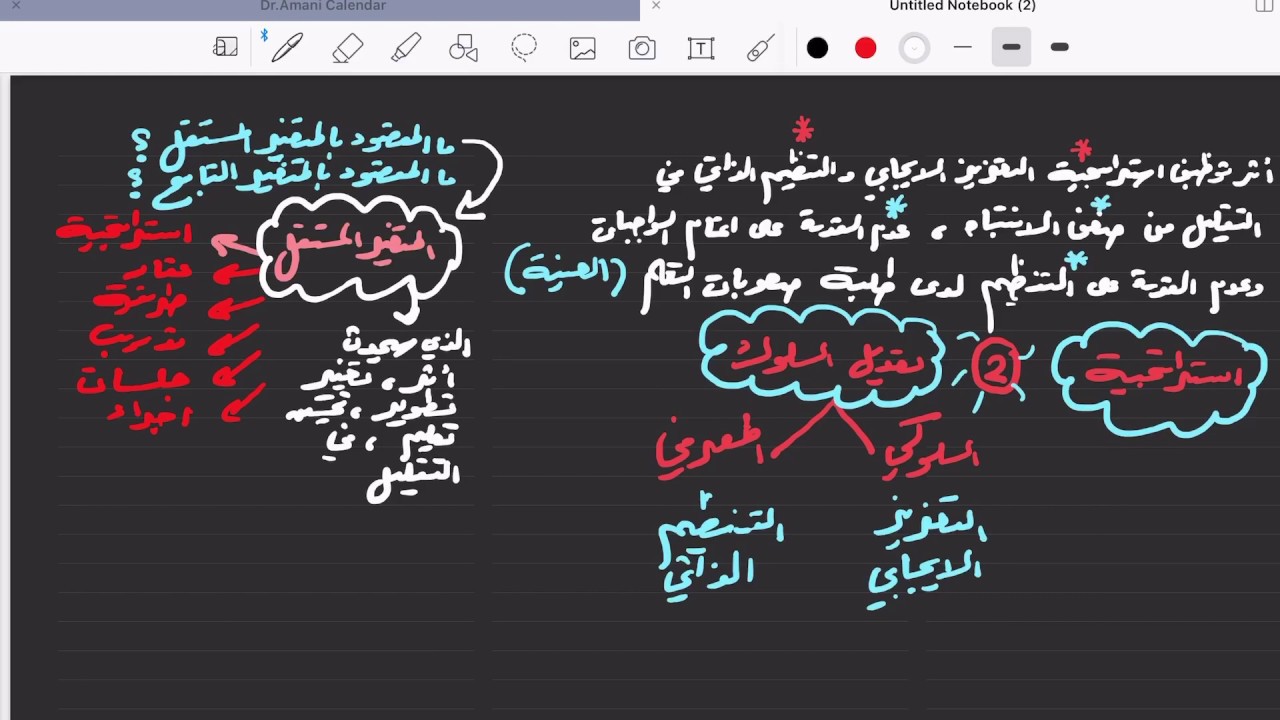 Dr.Amani Calendar
Untitled Notebook (2)
أثر توظيف استراتيجية التعزيز الايجابي والتنظيم الذاتي في
التقليل من ضعف الانتباه ، عدم القدرة على اتمام الواجبات
وعدم القدرة على التنظيم لدى طلبة صعوبات التعلم (العينة)
استراتيجية
2
تعديل السلوك
السلوكي
المعرفي
التعزيز
الايجابي
التنظيم
الذاتي
ما المقصود بالمتغير المستقل ؟
ما المقصود بالمتغير التابع ؟
المتغير المستقل
استراتيجية
طريقة
تدريب
جلسات
الذي سيحدث
أثر ، تغيير
تطوير ، تحسين
تعليم ، في
التقليل